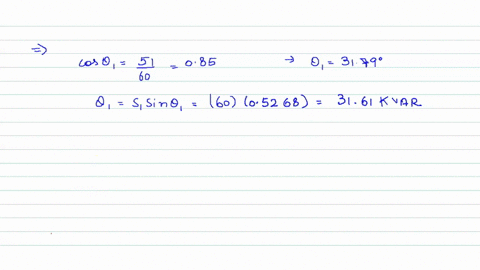 ⇒
cosθ₁ = 51/60 = 0.85 → θ₁ = 31.79°
Q₁ = S₁ sinθ₁ = (60) (0.5268) = 31.61 KVAR